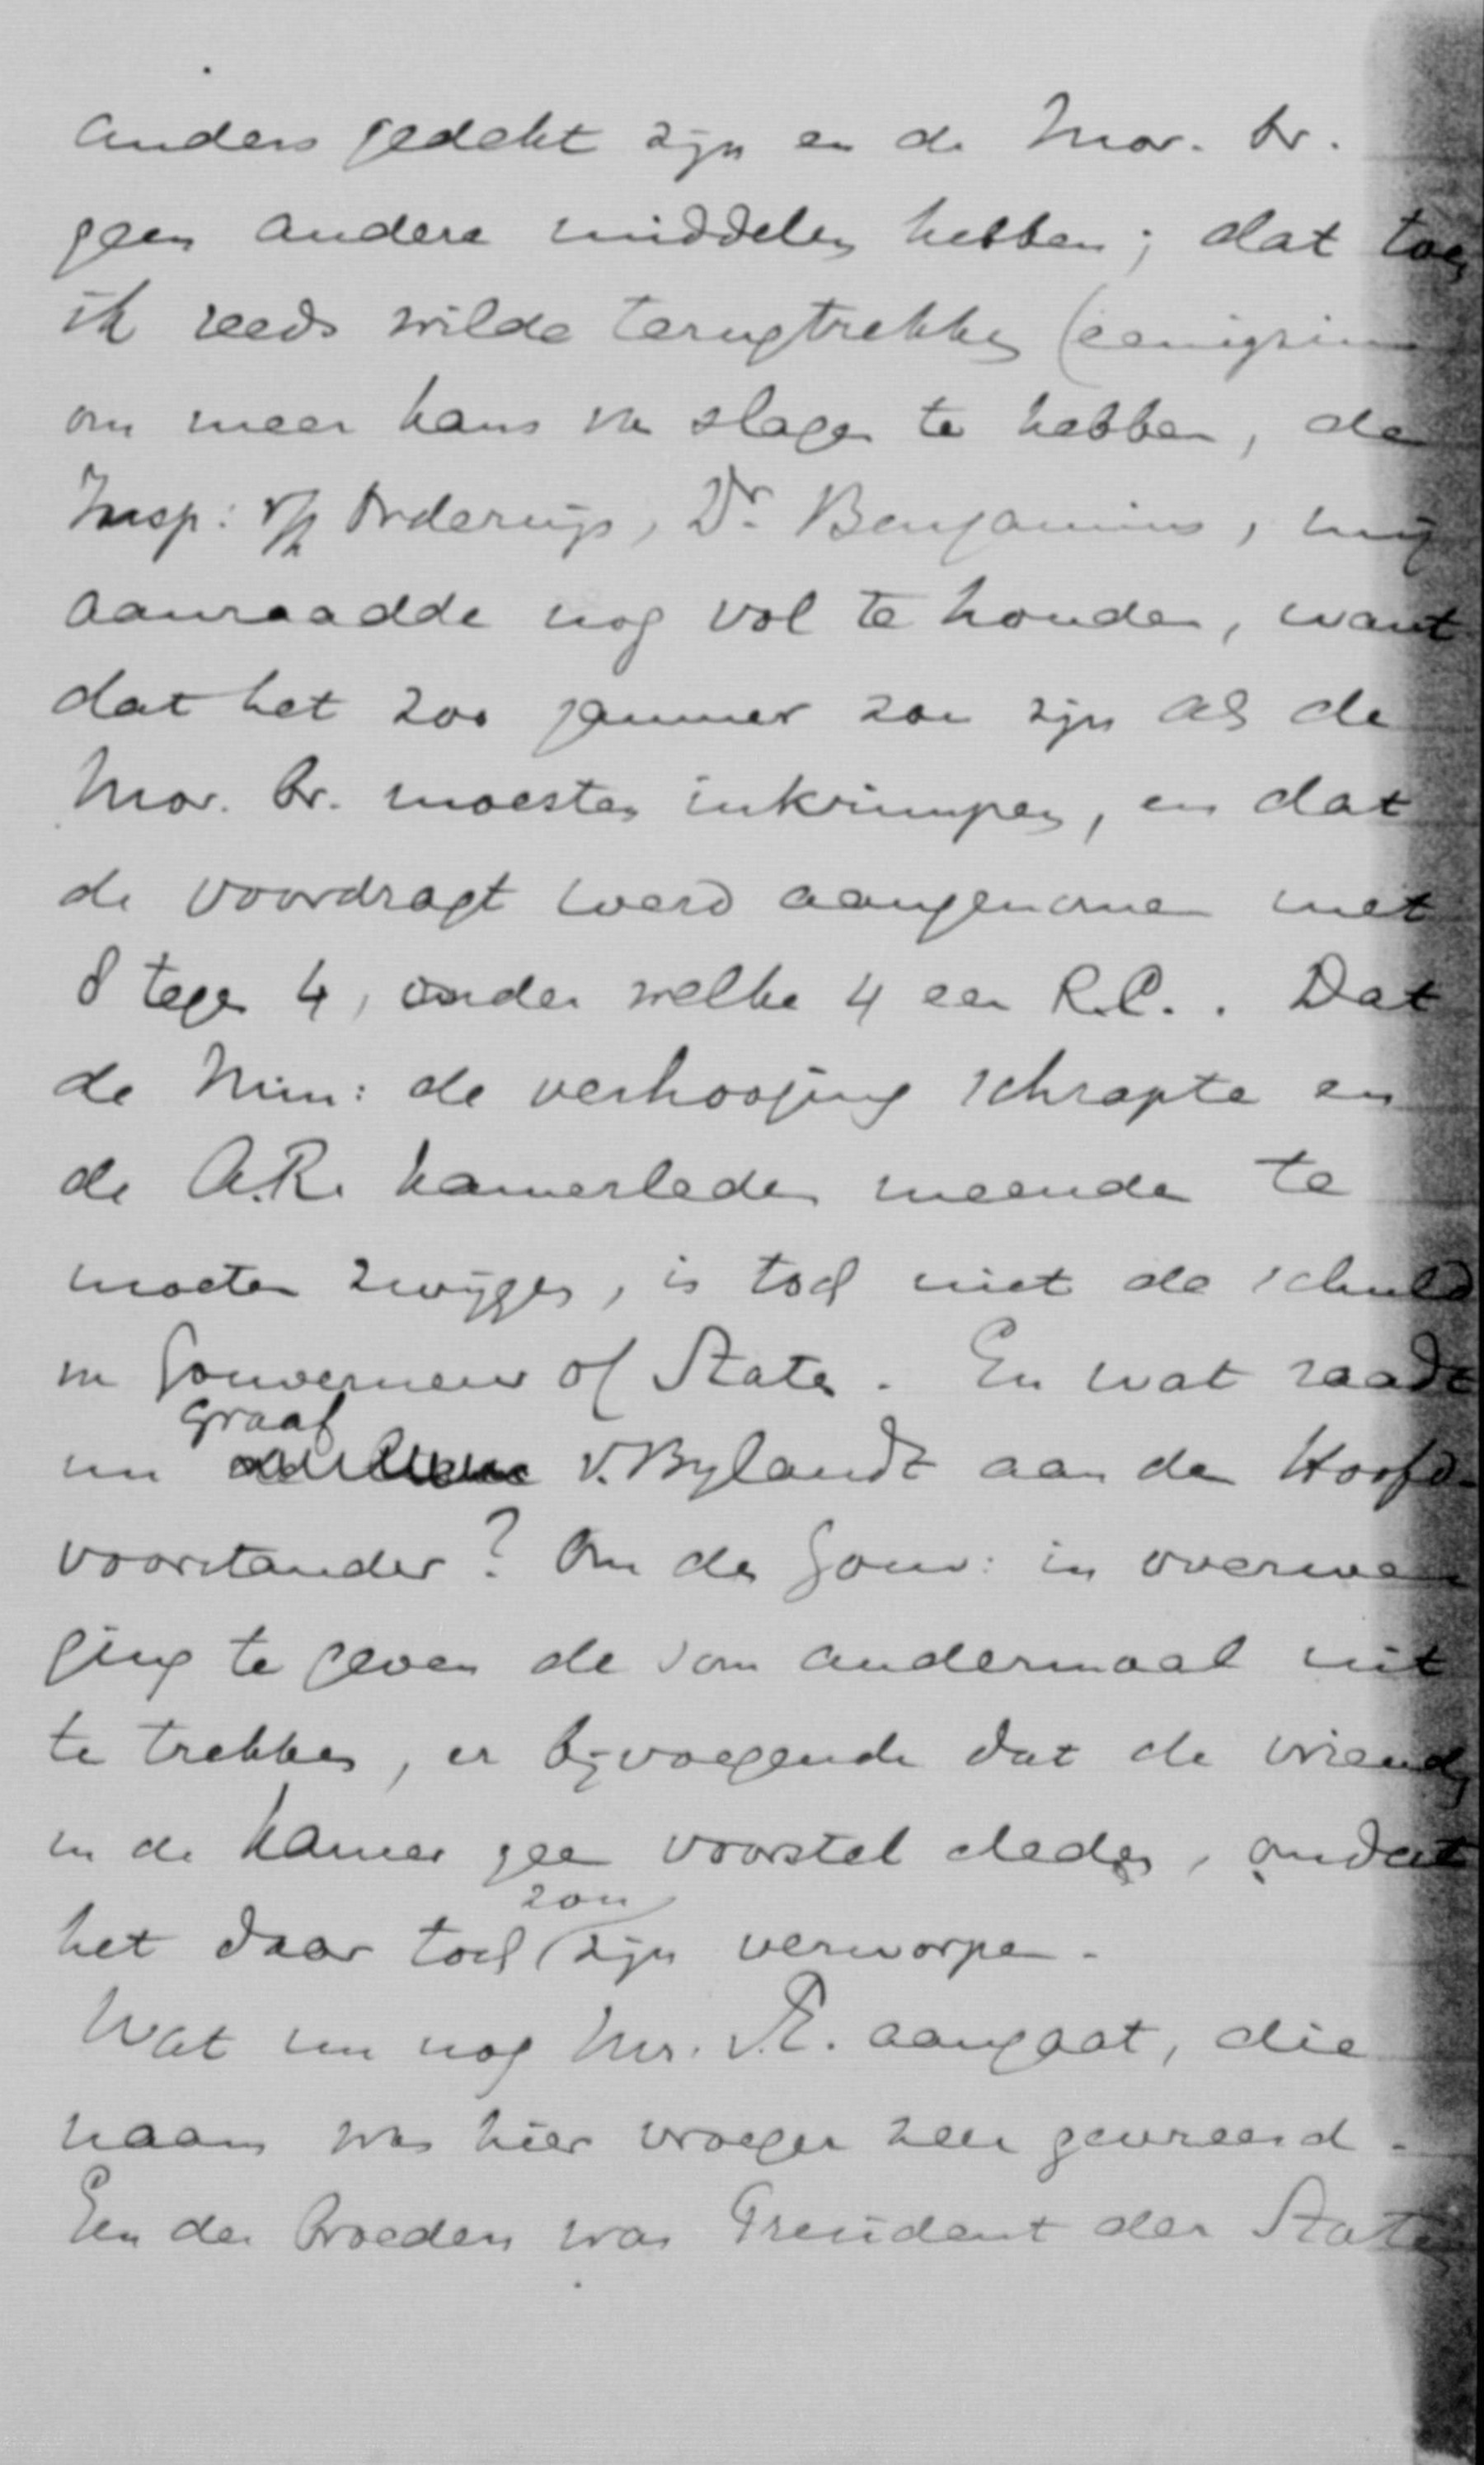 anders gedekt zijn en de Mor. br.
geen andere middelen hebben; dat toen
ik reeds wilde terugtrekken (eenigzins
om meer kans van slagen te hebben, de
Insp: v/h Onderwijs, Dr. Benjamins, mij
aanraadde nog vol te houden, want
dat het zoo jammer zou zijn als de
Mor. br. moesten inkrimpen, en dat
de voordragt werd aangenomen met
8 tegen 4, onder welke 4 een R.C.. Dat
de Min: de verhooging schrapte en
de A.R. kamerleden meenden te
moeten zwijgen, is toch niet de schuld
van Gouverneur of Staten. En wat raadt
nu graaf v. Bylandt aan den Hoofd-
voorstander? Om den Gouv: in overwe
ging te geven de som andermaal uit
te trekken, er bijvoegende dat de vrienden
in de kamer geen voorstel deden, omdat
het daar toch zou zijn verworpen.
Wat nu nog Mr. v. E. aangaat, die
naam was hier vroeger zeer gevreesd.
Een der broeders was President der Staten